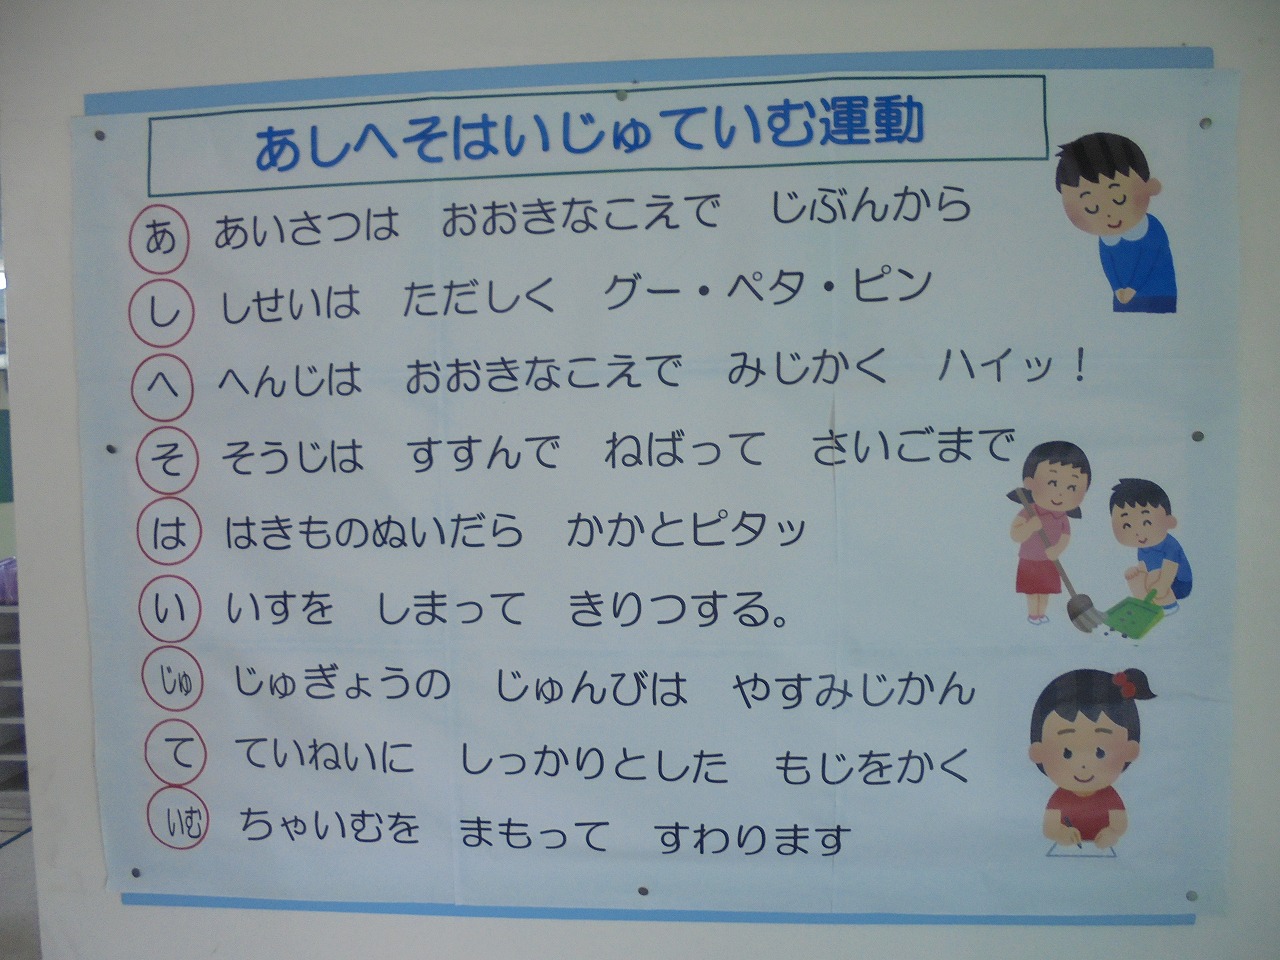 あしへそはいじゅていむ運動
あ あいさつは おおきなこえで じぶんから
し しせいは ただしく グー・ペタ・ピン
へ へんじは おおきなこえで みじかく ハイッ！
そ そうじは すすんで ねばって さいごまで
は はきものぬいだら かかとピタッ
い いすを しまって きりつする。
じゅ じゅぎょうの じゅんびは やすみじかん
て ていねいに しっかりとした もじをかく
いむ ちゃいむを まもって すわります